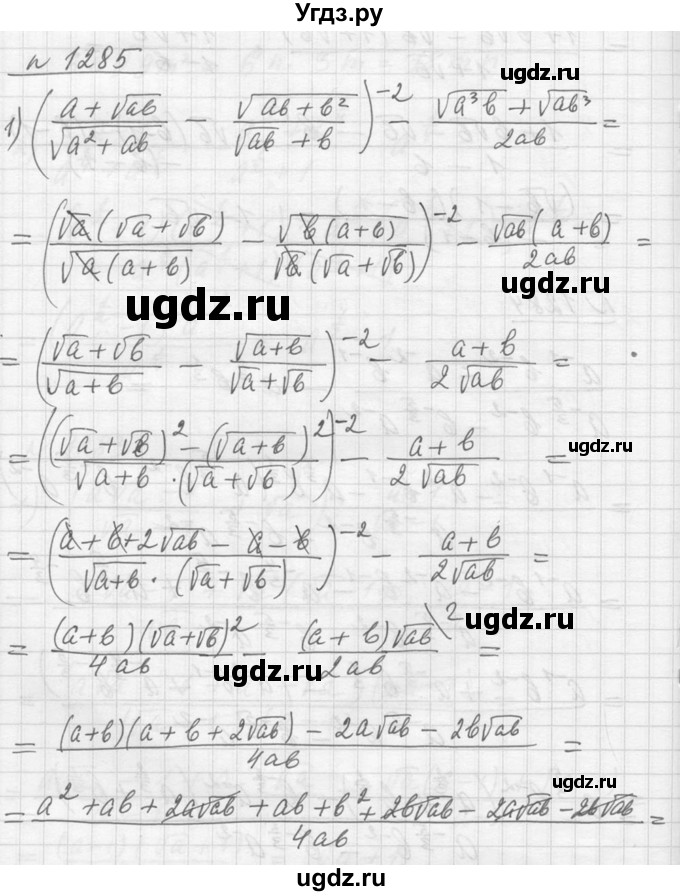 Угдз.ру
n 1285
1) ((a + √ab)/(√(a² + ab)) − (√(ab + b²))/(√ab + b))⁻² − (√(a³b) + √(ab³))/(2ab) =
= ((√a(√a + √b))/(√(a(a + b))) − (√(b(a + b)))/(√b(√a + √b)))⁻² − (√ab(a + b))/(2ab) =
ugdz.ru
ugdz.ru
= ((√a + √b)/(√(a + b)) − (√(a + b))/(√a + √b))⁻² − (a + b)/(2√ab) =
= (((√a + √b)² − (√(a + b))²)/(√(a + b) · (√a + √b)))⁻² − (a + b)/(2√ab) =
ugdz.ru
ugdz.ru
= ((a + b + 2√ab − a − b)/(√(a + b) · (√a + √b)))⁻² − (a + b)/(2√ab) =
= ((a + b)(√a + √b)²)/(4ab) − ((a + b)√ab \2)/(2ab) =
ugdz.ru
ugdz.ru
= ((a + b)(a + b + 2√ab) − 2a√ab − 2b√ab)/(4ab) =
ugdz.ru
= (a² + ab + 2a√ab + ab + b² + 2b√ab − 2a√ab − 2b√ab)/(4ab) =
ugdz.ru
ugdz.ru